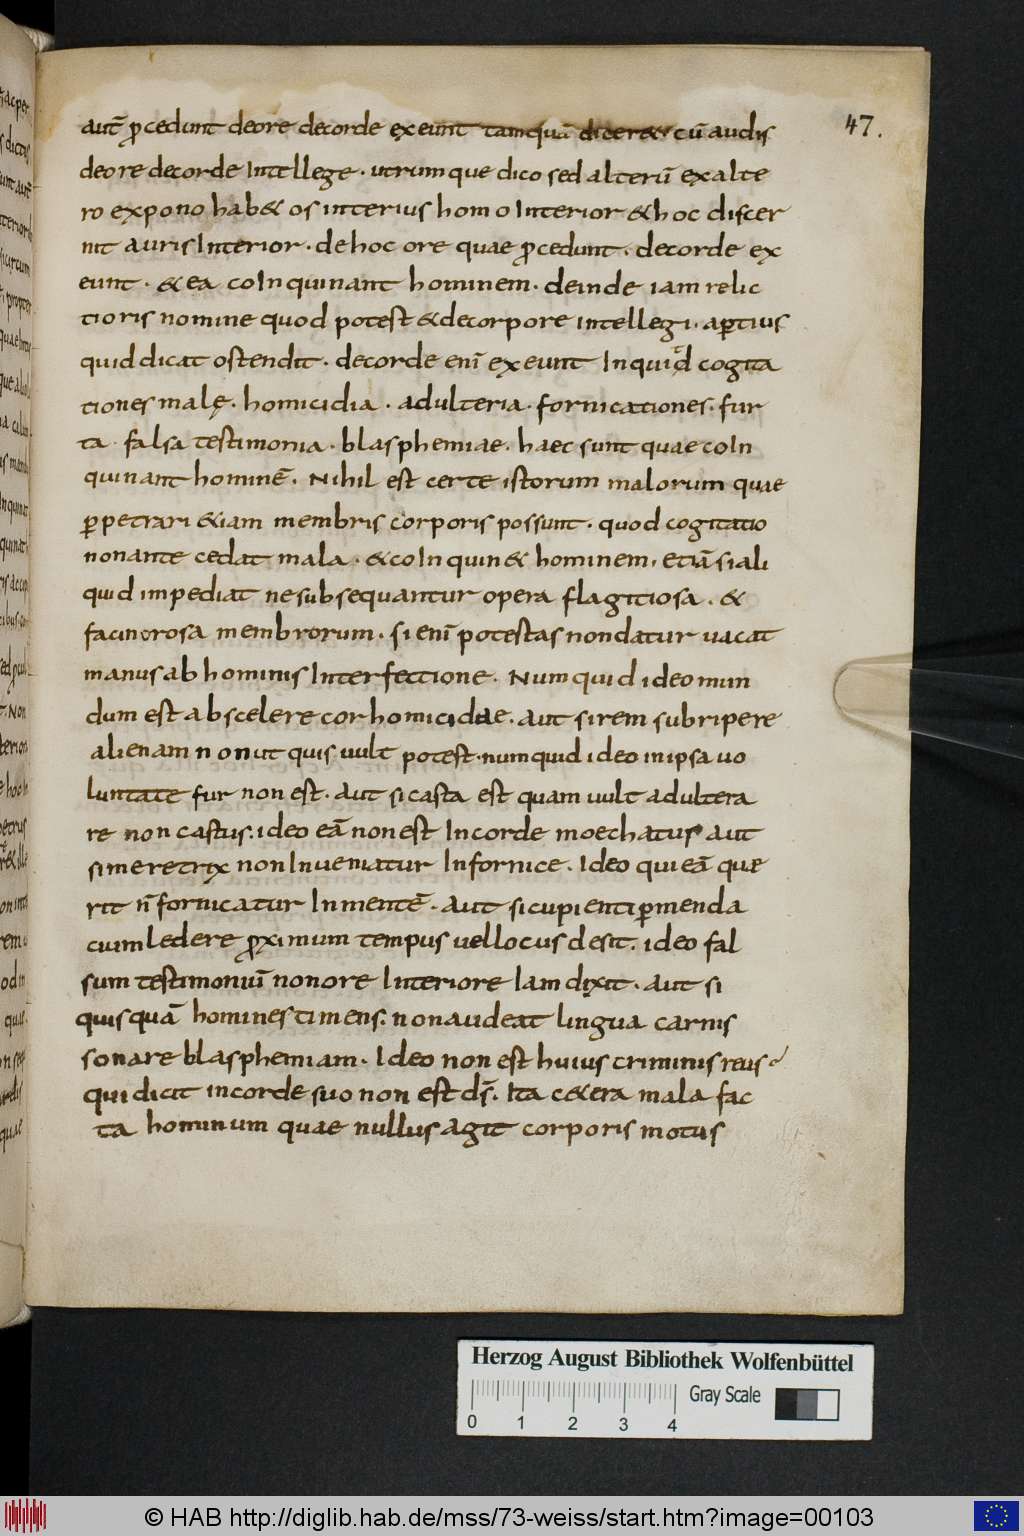 autē ꝓcedunt deore decorde exeunt tamquā dicer& cū audis
47.
deore decorde Intellege · utrumque dico sed alterū exalte
ro expono hab& os interius homo Interior &hoc discer
nit auris Interior · dehoc ore quae ꝓcedunt · decorde ex
eunt · &ea coInquinant hominem · deinde iam relic
tioris nomine quod potest &decorpore intellegi · aꝑtius
quid dicat ostendit · decorde enī exeunt Inquid cogita
tiones malę · homicidia · adulteria · fornicationes · fur
ta · falsa testimonia · blasphemiae · haec sunt quae coIn
quinant hominē · Nihil est certe istorum malorum quae
ꝑpetrari &iam membris corporis possunt · quod cogitatio
nonante cedat mala · &coInquin& hominem · etiā siali
quid impediat ne subsequantur opera flagitiosa · &
facinorosa membrorum · si enī potestas nondatur uacat
manus ab hominis Interfectione · Numquid ideo mun
dum est abscelere cor homicidae · aut sirem subripere
alienam nonut quis uult potest · numquid ideo inipsa uo
luntate fur non est · aut si casta est quam uult adultera
re non castus · ideo eā non est Incorde moechatus aut
simeretrix non Inueniatur Infornice · Ideo qui eā quae
rit n̄ fornicatur Inmentē · aut sicupienti ꝑmenda
cium ledere ꝓximum tempus uellocus desit · ideo fal
sum testimoniū nonore Interiore Iam dixit · aut si
quisquā homines timens · nonaudeat lingua carnis
sonare blasphemiam · Ideo non est huius criminis reus
qui dicit incorde suo non est dś · Ita c&era mala fac
ta hominum quae nullus agit corporis motus
Herzog August Bibliothek Wolfenbüttel
Gray Scale
0 1 2 3 4
© HAB http://diglib.hab.de/mss/73-weiss/start.htm?image=00103